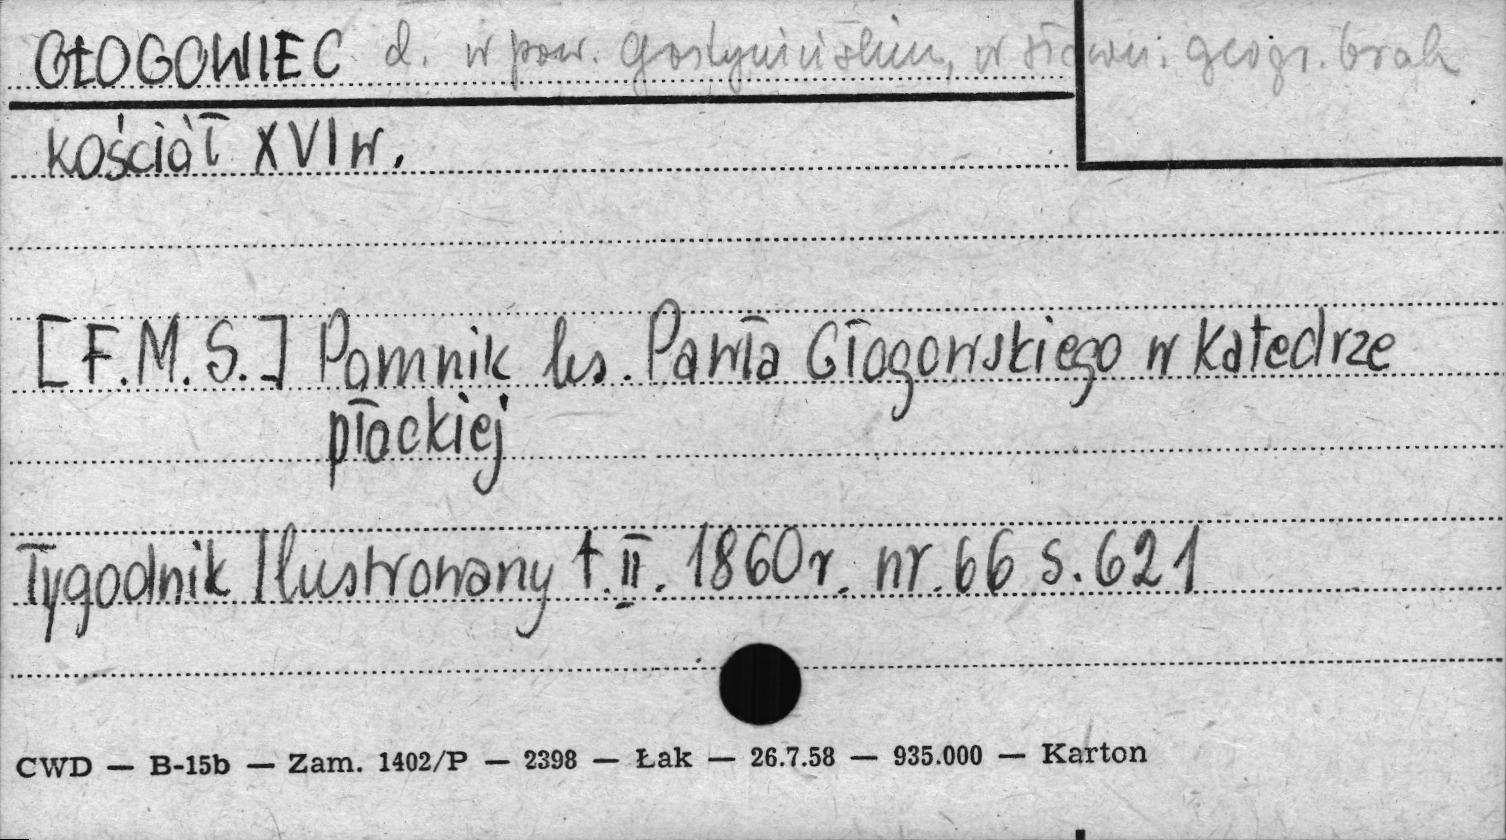 GŁOGOWIEC d. w pow. gostynińskim, w słown. geogr. brak
kościół XVI w.
[F.M.S.] Pomnik ks. Pawła Głogowskiego w Katedrze
płockiej
Tygodnik Ilustrowany t. II. 1860 r. nr. 66 s. 621
CWD — B-15b — Zam. 1402/P — 2398 — Łak — 26.7.58 — 935.000 — Karton